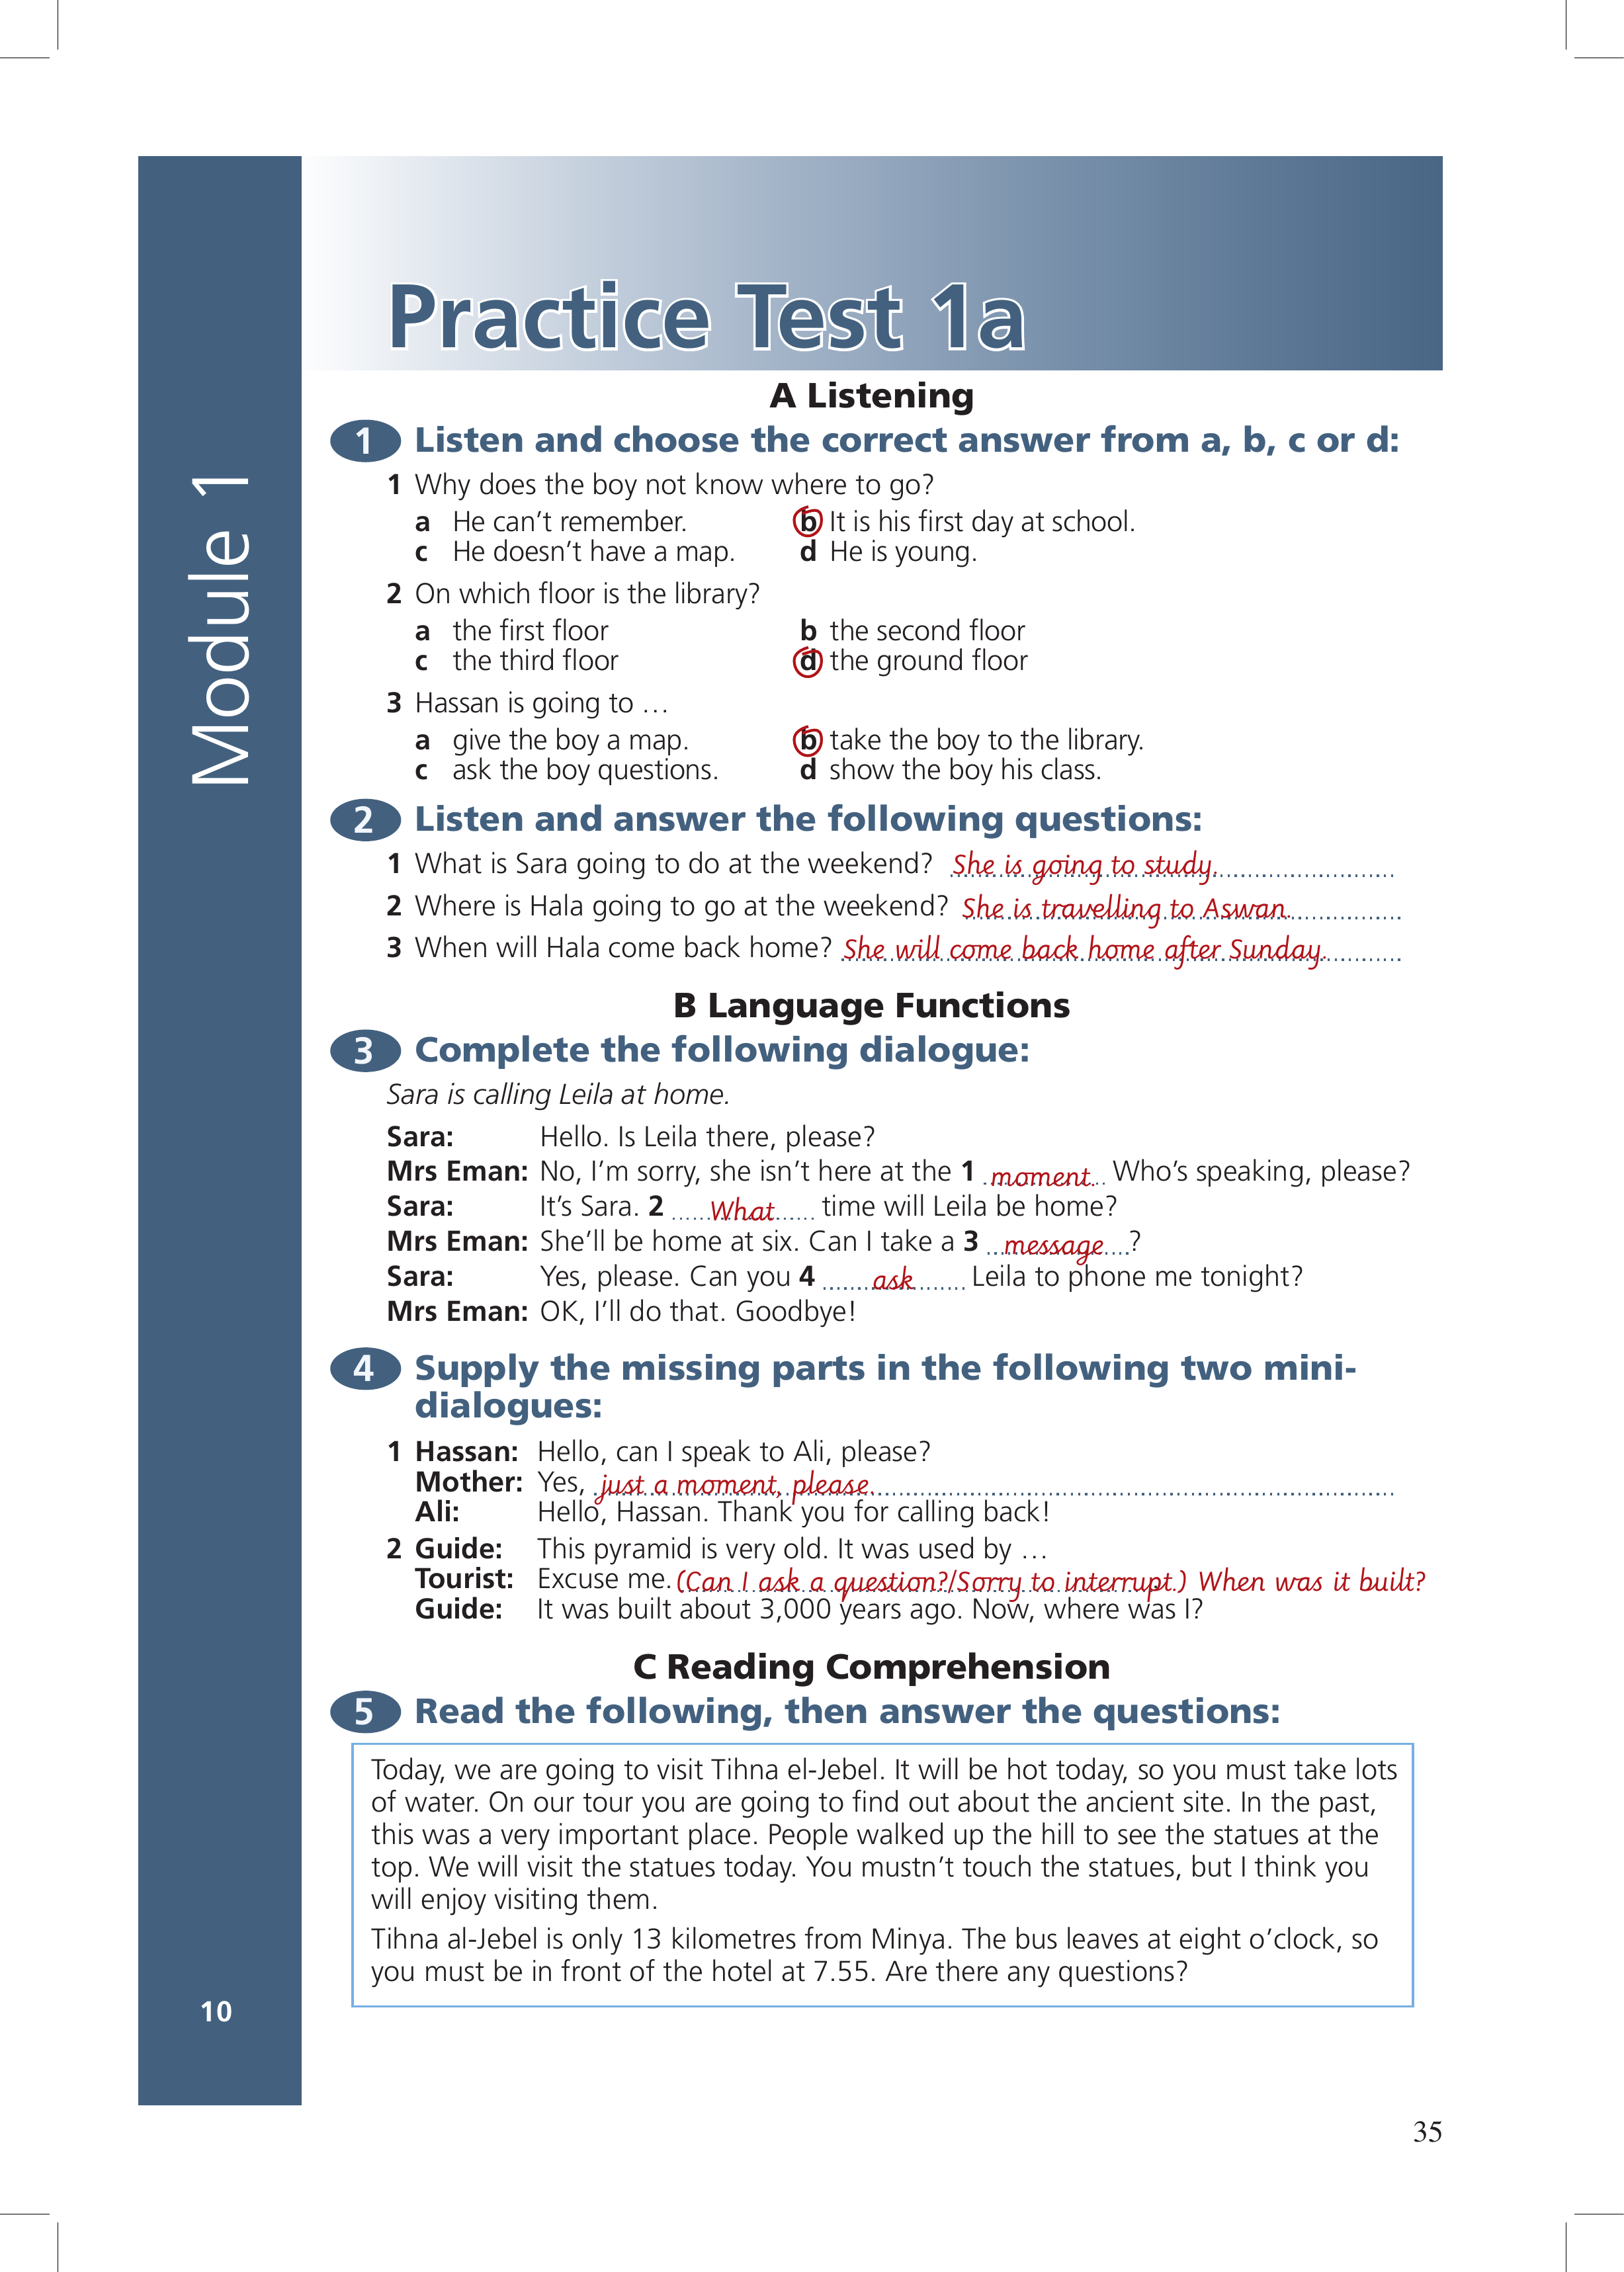 Module 1
Practice Test 1a
A Listening
1 Listen and choose the correct answer from a, b, c or d:
1 Why does the boy not know where to go?
a He can't remember. b It is his first day at school.
c He doesn't have a map. d He is young.
2 On which floor is the library?
a the first floor b the second floor
c the third floor d the ground floor
3 Hassan is going to …
a give the boy a map. b take the boy to the library.
c ask the boy questions. d show the boy his class.
2 Listen and answer the following questions:
1 What is Sara going to do at the weekend? She is going to study.
2 Where is Hala going to go at the weekend? She is travelling to Aswan.
3 When will Hala come back home? She will come back home after Sunday.
B Language Functions
3 Complete the following dialogue:
Sara is calling Leila at home.
Sara: Hello. Is Leila there, please?
Mrs Eman: No, I'm sorry, she isn't here at the 1 moment. Who's speaking, please?
Sara: It's Sara. 2 What time will Leila be home?
Mrs Eman: She'll be home at six. Can I take a 3 message?
Sara: Yes, please. Can you 4 ask Leila to phone me tonight?
Mrs Eman: OK, I'll do that. Goodbye!
4 Supply the missing parts in the following two mini-
dialogues:
1 Hassan: Hello, can I speak to Ali, please?
Mother: Yes, just a moment, please.
Ali: Hello, Hassan. Thank you for calling back!
2 Guide: This pyramid is very old. It was used by …
Tourist: Excuse me. (Can I ask a question?/Sorry to interrupt.) When was it built?
Guide: It was built about 3,000 years ago. Now, where was I?
C Reading Comprehension
5 Read the following, then answer the questions:
Today, we are going to visit Tihna el-Jebel. It will be hot today, so you must take lots
of water. On our tour you are going to find out about the ancient site. In the past,
this was a very important place. People walked up the hill to see the statues at the
top. We will visit the statues today. You mustn't touch the statues, but I think you
will enjoy visiting them.
Tihna al-Jebel is only 13 kilometres from Minya. The bus leaves at eight o'clock, so
you must be in front of the hotel at 7.55. Are there any questions?
10
35